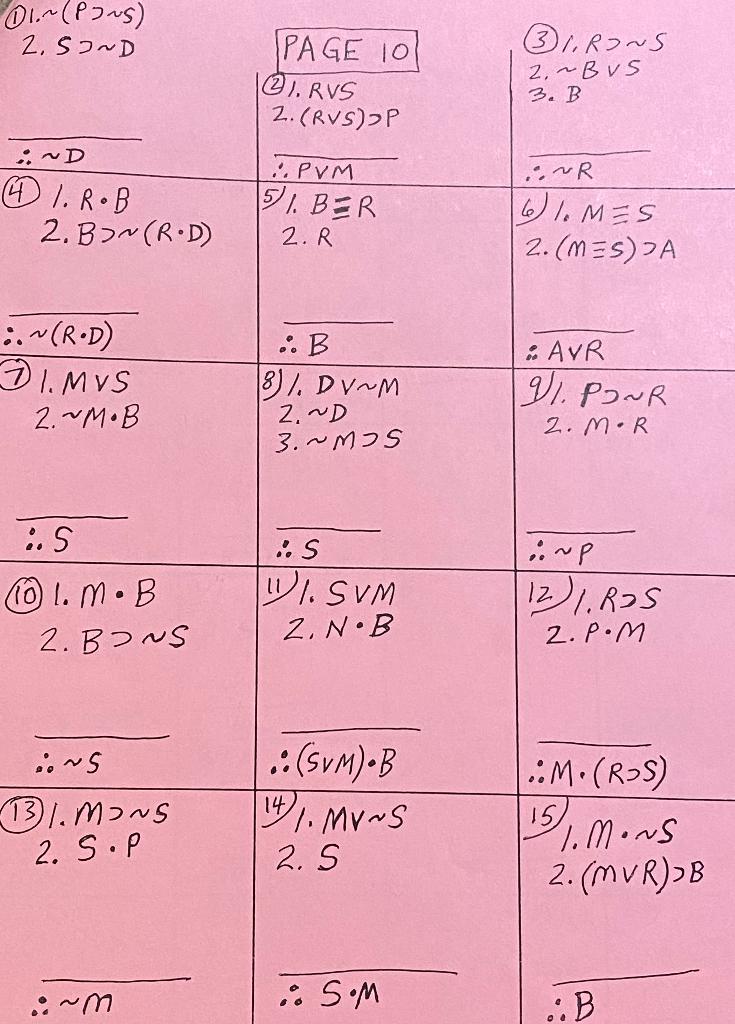 ① 1. ~(P⊃~S)
2. S⊃~D
∴ ~D
PAGE 10
② 1. RVS
2. (RVS)⊃P
∴ PVM
③ 1. R⊃~S
2. ~BVS
3. B
∴ ~R
④ 1. R·B
2. B⊃~(R·D)
∴ ~(R·D)
5) 1. B≡R
2. R
∴ B
6) 1. M≡S
2. (M≡S)⊃A
∴ AVR
⑦ 1. MVS
2. ~M·B
∴ S
8) 1. DV~M
2. ~D
3. ~M⊃S
∴ S
9) 1. P⊃~R
2. M·R
∴ ~P
⑩ 1. M·B
2. B⊃~S
∴ ~S
11) 1. SVM
2. N·B
∴ (SVM)·B
12) 1. R⊃S
2. P·M
∴ M·(R⊃S)
⑬ 1. M⊃~S
2. S·P
∴ ~M
14) 1. MV~S
2. S
∴ S·M
15) 1. M·~S
2. (MVR)⊃B
∴ B